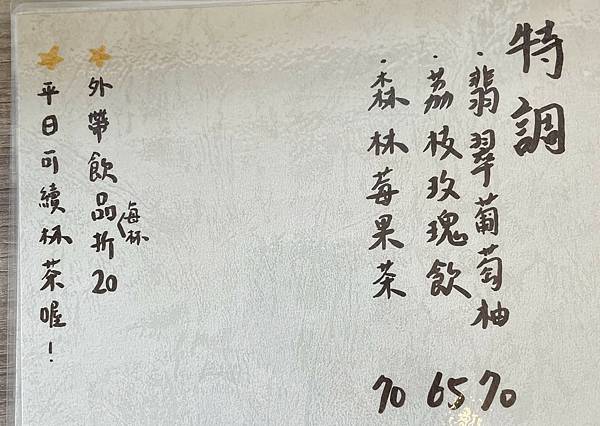 特調
·翡翠葡萄柚 70
·荔枝玫瑰飲 65
·森林莓果茶 70
外帶飲品(每杯折20
平日可續杯茶喔!